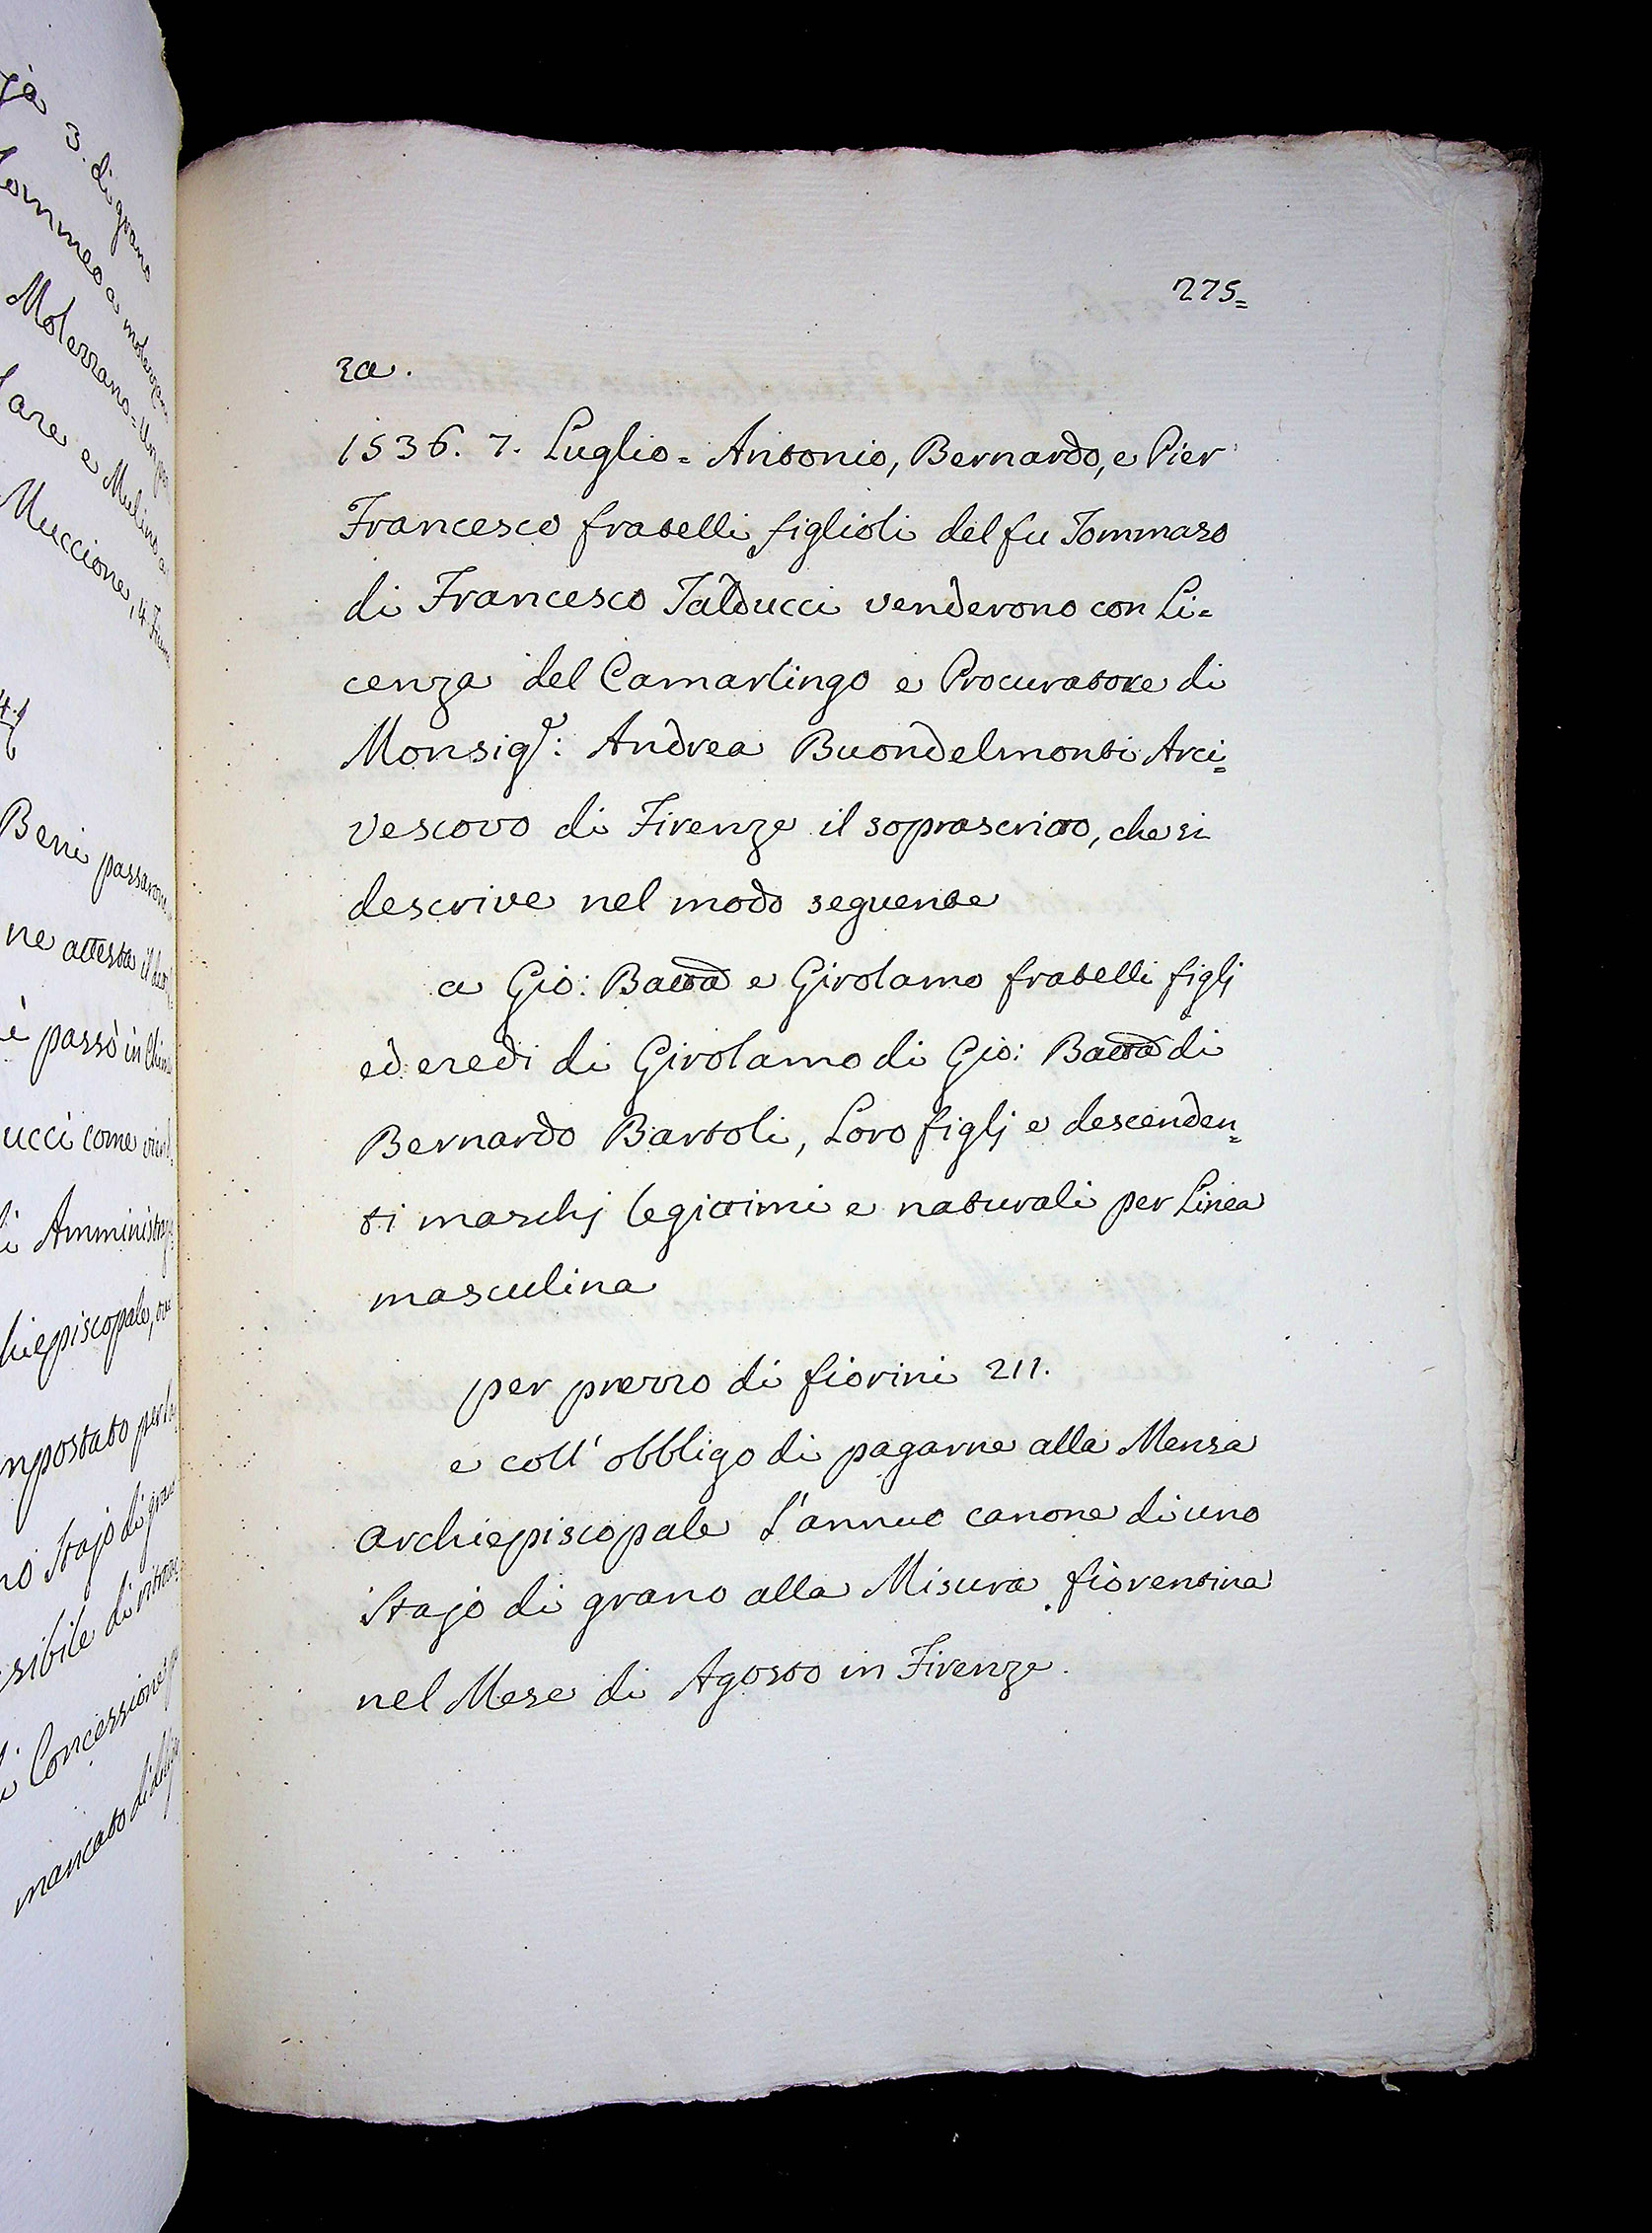 275=
za.
1536. 7. Luglio = Antonio, Bernardo, e Pier
Francesco fratelli figlioli del fu Tommaso
di Francesco Talducci venderono con Li=
cenza del Camarlingo e Procuratore di
Monsigr: Andrea Buondelmonti Arci=
vescovo di Firenze il soprascritto, che si
descrive nel modo seguente
a Gio: Batta e Girolamo fratelli figlj
ed eredi di Girolamo di Gio: Batta di
Bernardo Bartoli, Loro figlj e descenden=
ti maschj legittimi e naturali per Linea
masculina
per prezzo di fiorini 211.
e coll' obbligo di pagarne alla Mensa
Archiepiscopale l'annuo canone di uno
Stajo di grano alla Misura fiorentina
nel Mese di Agosto in Firenze.
3. di grano
Molezzano =
e Mulino a
Muccione, 4.
Beni passarono
ne attesta il
è passò in
ucci come
Amminist
hiepiscopale,
mpostato per
no Stajo di grano
sibile di
Concessione
mancato di